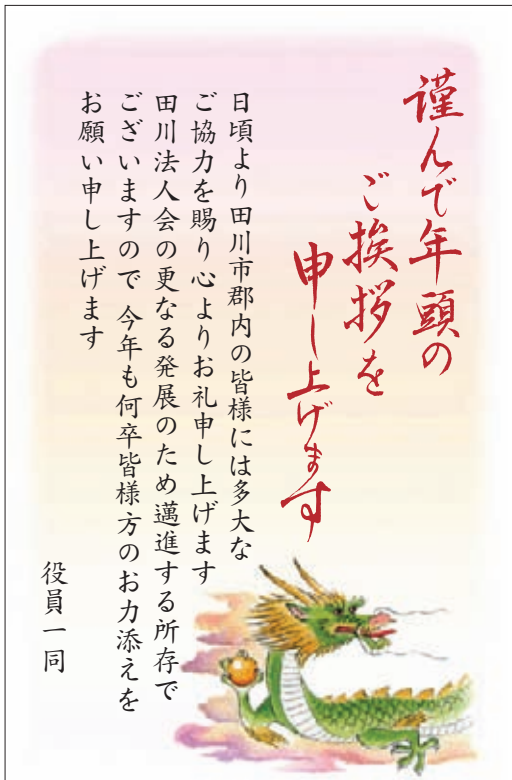 謹んで年頭の
ご挨拶を
申し上げます
日頃より田川市郡内の皆様には多大な
ご協力を賜り心よりお礼申し上げます
田川法人会の更なる発展のため邁進する所存で
ございますので 今年も何卒皆様方のお力添えを
お願い申し上げます
役員一同